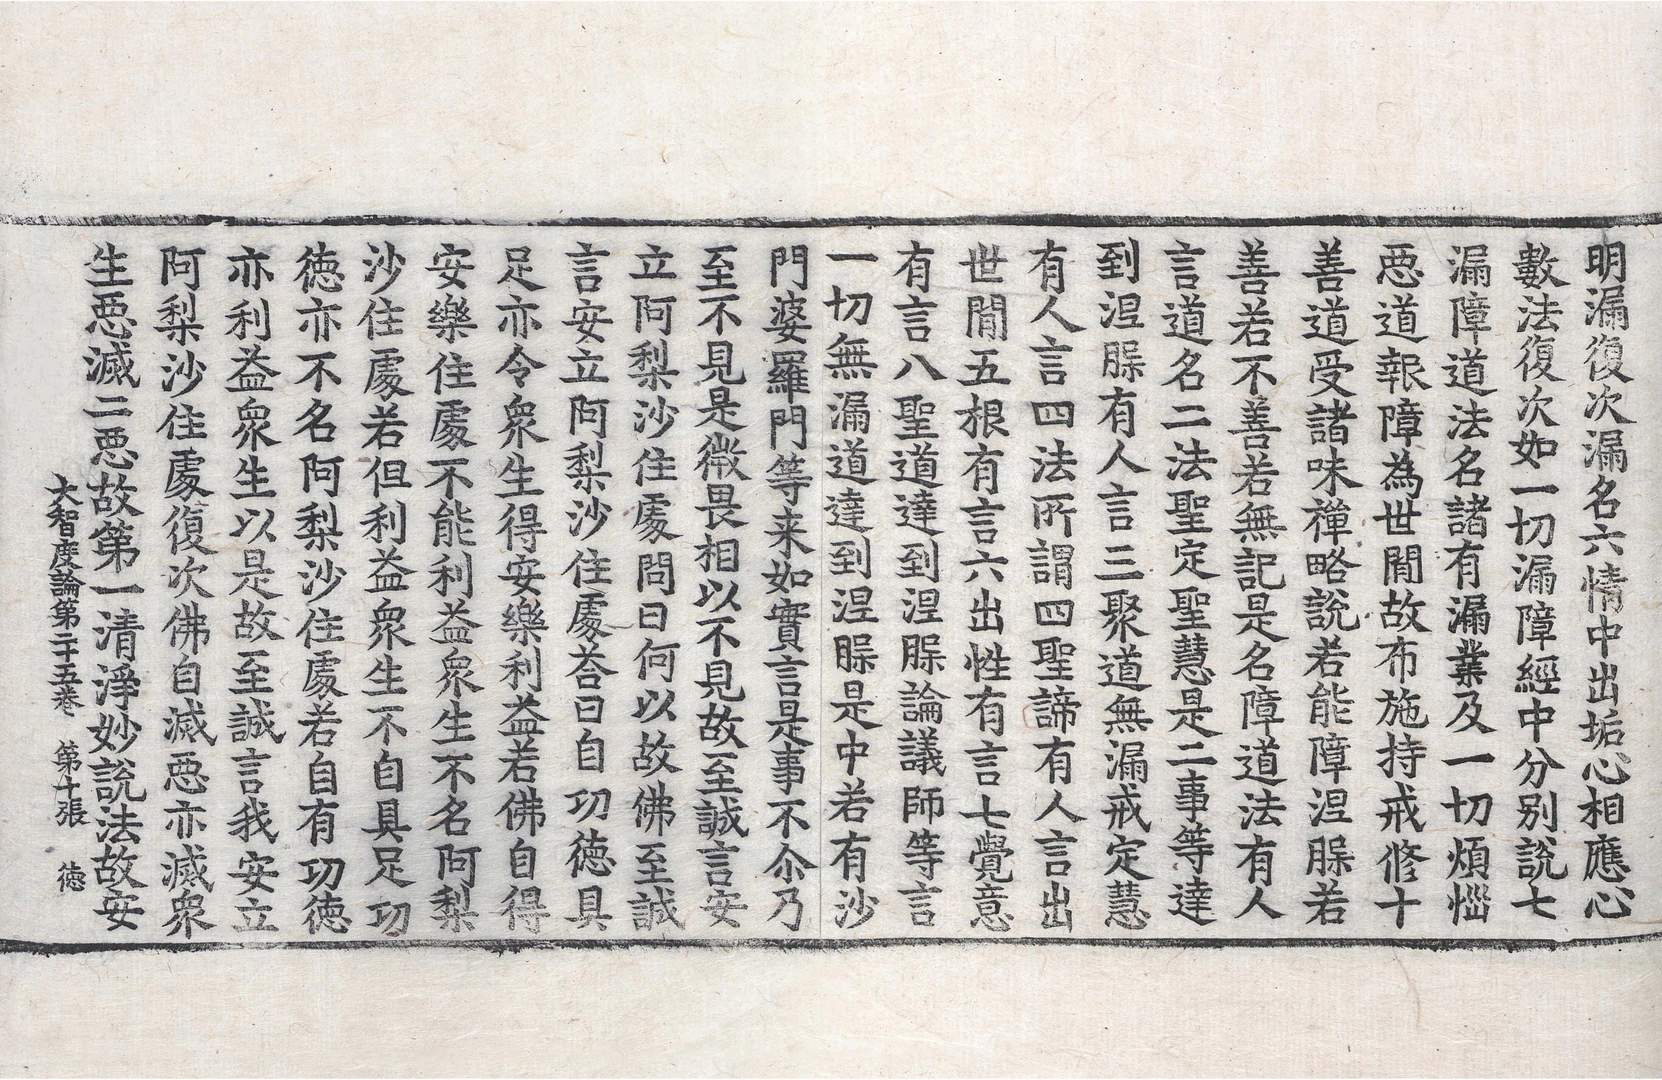 明漏復次漏名六情中出垢心相應心
數法復次如一切漏障經中分别說七
漏障道法名諸有漏業及一切煩惱
惡道報障為世間故布施持戒修十
善道受諸味禪略說若能障涅槃若
善若不善若無記是名障道法有人
言道名二法聖定聖慧是二事等達
到涅槃有人言三聚道無漏戒定慧
有人言四法所謂四聖諦有人言出
世間五根有言六出性有言七覺意
有言八聖道達到涅槃論議師等言
一切無漏道達到涅槃是中若有沙
門婆羅門等来如實言是事不尒乃
至不見是微畏相以不見故至誠言安
立阿梨沙住處問曰何以故佛至誠
言安立阿梨沙住處荅曰自功德具
足亦令衆生得安樂利益若佛自得
安樂住處不能利益衆生不名阿梨
沙住處若但利益衆生不自具足功
德亦不名阿梨沙住處若自有功德
亦利益衆生以是故至誠言我安立
阿梨沙住處復次佛自滅惡亦滅衆
生惡滅二惡故第一清淨妙說法故安
大智度論第二十五卷 第十張 德